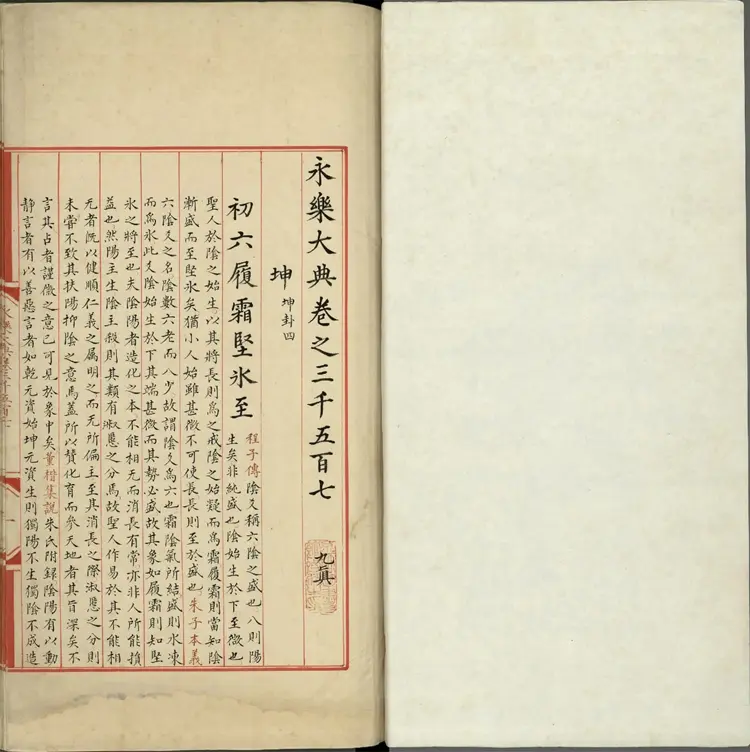 永樂大典卷之三千五百七 九眞
坤 坤卦四
初六履霜堅氷至
程子傳陰爻稱六陰之盛也八則陽
生矣非純盛也陰始生於下至微也
聖人於陰之始生以其將長則爲之戒陰之始凝而爲霜履霜則當知陰
漸盛而至堅氷矣猶小人始雖甚微不可使長長則至於盛也朱子本義
六陰爻之名陰數六老而八少故謂陰爻爲六也霜陰氣所結盛則水凍
而爲氷此爻陰始生於下其端甚微而其勢必盛故其象如履霜則知堅
氷之將至也夫陰陽者造化之本不能相无而消長有常亦非人所能損
益也然陽主生陰主殺則其類有淑慝之分焉故聖人作易於其不能相
无者旣以健順仁義之属明之而无所偏主至其消長之際淑慝之分則
未嘗不致其扶陽抑陰之意焉蓋所以贊化育而參天地者其旨深矣不
言其占者謹微之意已可見於象中矣董楷集說朱氏附録陰陽有以動
靜言者有以善惡言者如乾元資始坤元資生則獨陽不生獨陰不成造